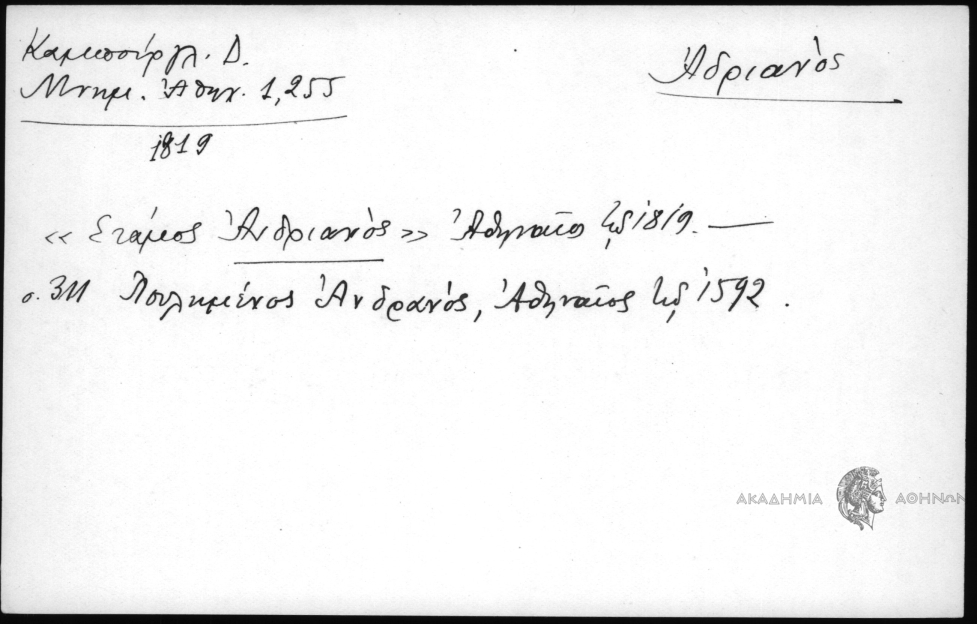 Καμπούργλ. Δ.
Μνημ. Ἀθην. 1,255
1819
Ἀδριανός
« Στάμος Ἀνδριανός » Ἀθηναῖος 1819. —
σ. 311 Πουλημένος Ἀνδρανός, Ἀθηναῖος 1592 .
ΑΚΑΔΗΜΙΑ ΑΘΗΝΩΝ